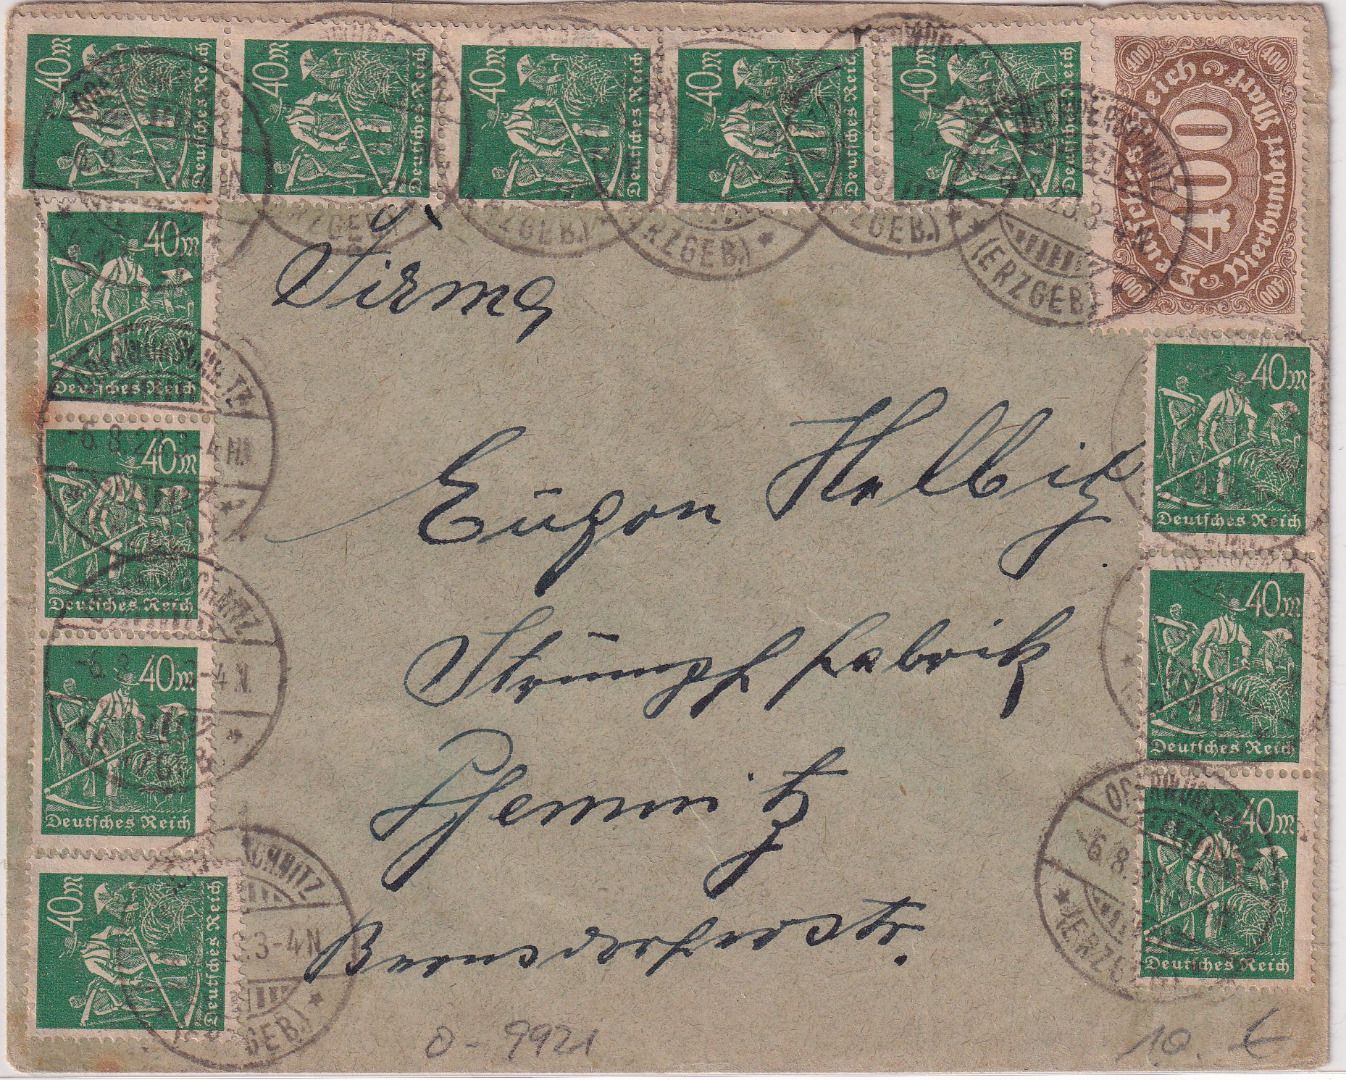 40M 40M 40M 40M 40M
Deutsches Reich Deutsches Reich Deutsches Reich Deutsches Reich Deutsches Reich
400 400 400 400
Deutsches Reich
400
Vierhundert Mark
OBERWÜRSCHNITZ
(ERZGEB.)
Firma
Eugen Helbig
Strumpffabrik
Chemnitz
Bernsdorferstr.
40M
Deutsches Reich
40M
Deutsches Reich
40M
Deutsches Reich
40M
Deutsches Reich
OBERWÜRSCHNITZ
-6.8.23.3-4N.
(ERZGEB.)
40M
Deutsches Reich
40M
Deutsches Reich
40M
Deutsches Reich
OBERWÜRSCHNITZ
-6.8.
(ERZGEB.)
0-9921
10. €